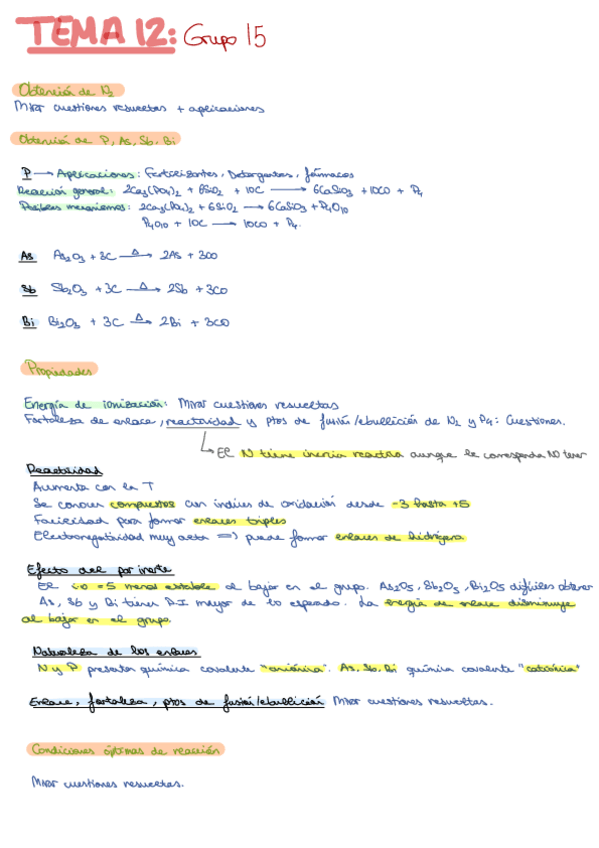 TEMA 12: Grupo 15
Obtención de N₂
Mirar cuestiones resueltas + aplicaciones
Obtención de P, As, Sb, Bi
P → Aplicaciones: Fertilizantes, Detergentes, fármacos
Reacción general: 2Ca₃(PO₄)₂ + 6SiO₂ + 10C → 6CaSiO₃ + 10CO + P₄
Posibles mecanismos: 2Ca₃(PO₄)₂ + 6SiO₂ → 6CaSiO₃ + P₄O₁₀
P₄O₁₀ + 10C → 10CO + P₄.
As As₂O₃ + 3C →Δ 2As + 3CO
Sb Sb₂O₃ + 3C →Δ 2Sb + 3CO
Bi Bi₂O₃ + 3C →Δ 2Bi + 3CO
Propiedades
Energía de ionización: Mirar cuestiones resueltas
Fortaleza de enlace, reactividad y ptos de fusión/ebullición de N₂ y P₄: Cuestiones.
↳ El N tiene inercia reactiva aunque le corresponda NO tener
Reactividad
Aumenta con la T
Se conocen compuestos con índices de oxidación desde -3 hasta +5
Facilidad para formar enlaces triples
Electronegatividad muy alta => puede formar enlaces de hidrógeno
Efecto del par inerte
El i.o = 5 menos estable al bajar en el grupo. As₂O₅, Sb₂O₅, Bi₂O₅ difíciles obtener
As, Sb y Bi tienen P.I mayor de lo esperado. La energía de enlace disminuye
al bajar en el grupo.
Naturaleza de los enlaces
N y P presentan química covalente "aniónica". As, Sb, Bi química covalente "catiónica"
Enlace, fortaleza, ptos de fusión/ebullición Mirar cuestiones resueltas.
Condiciones óptimas de reacción
Mirar cuestiones resueltas.